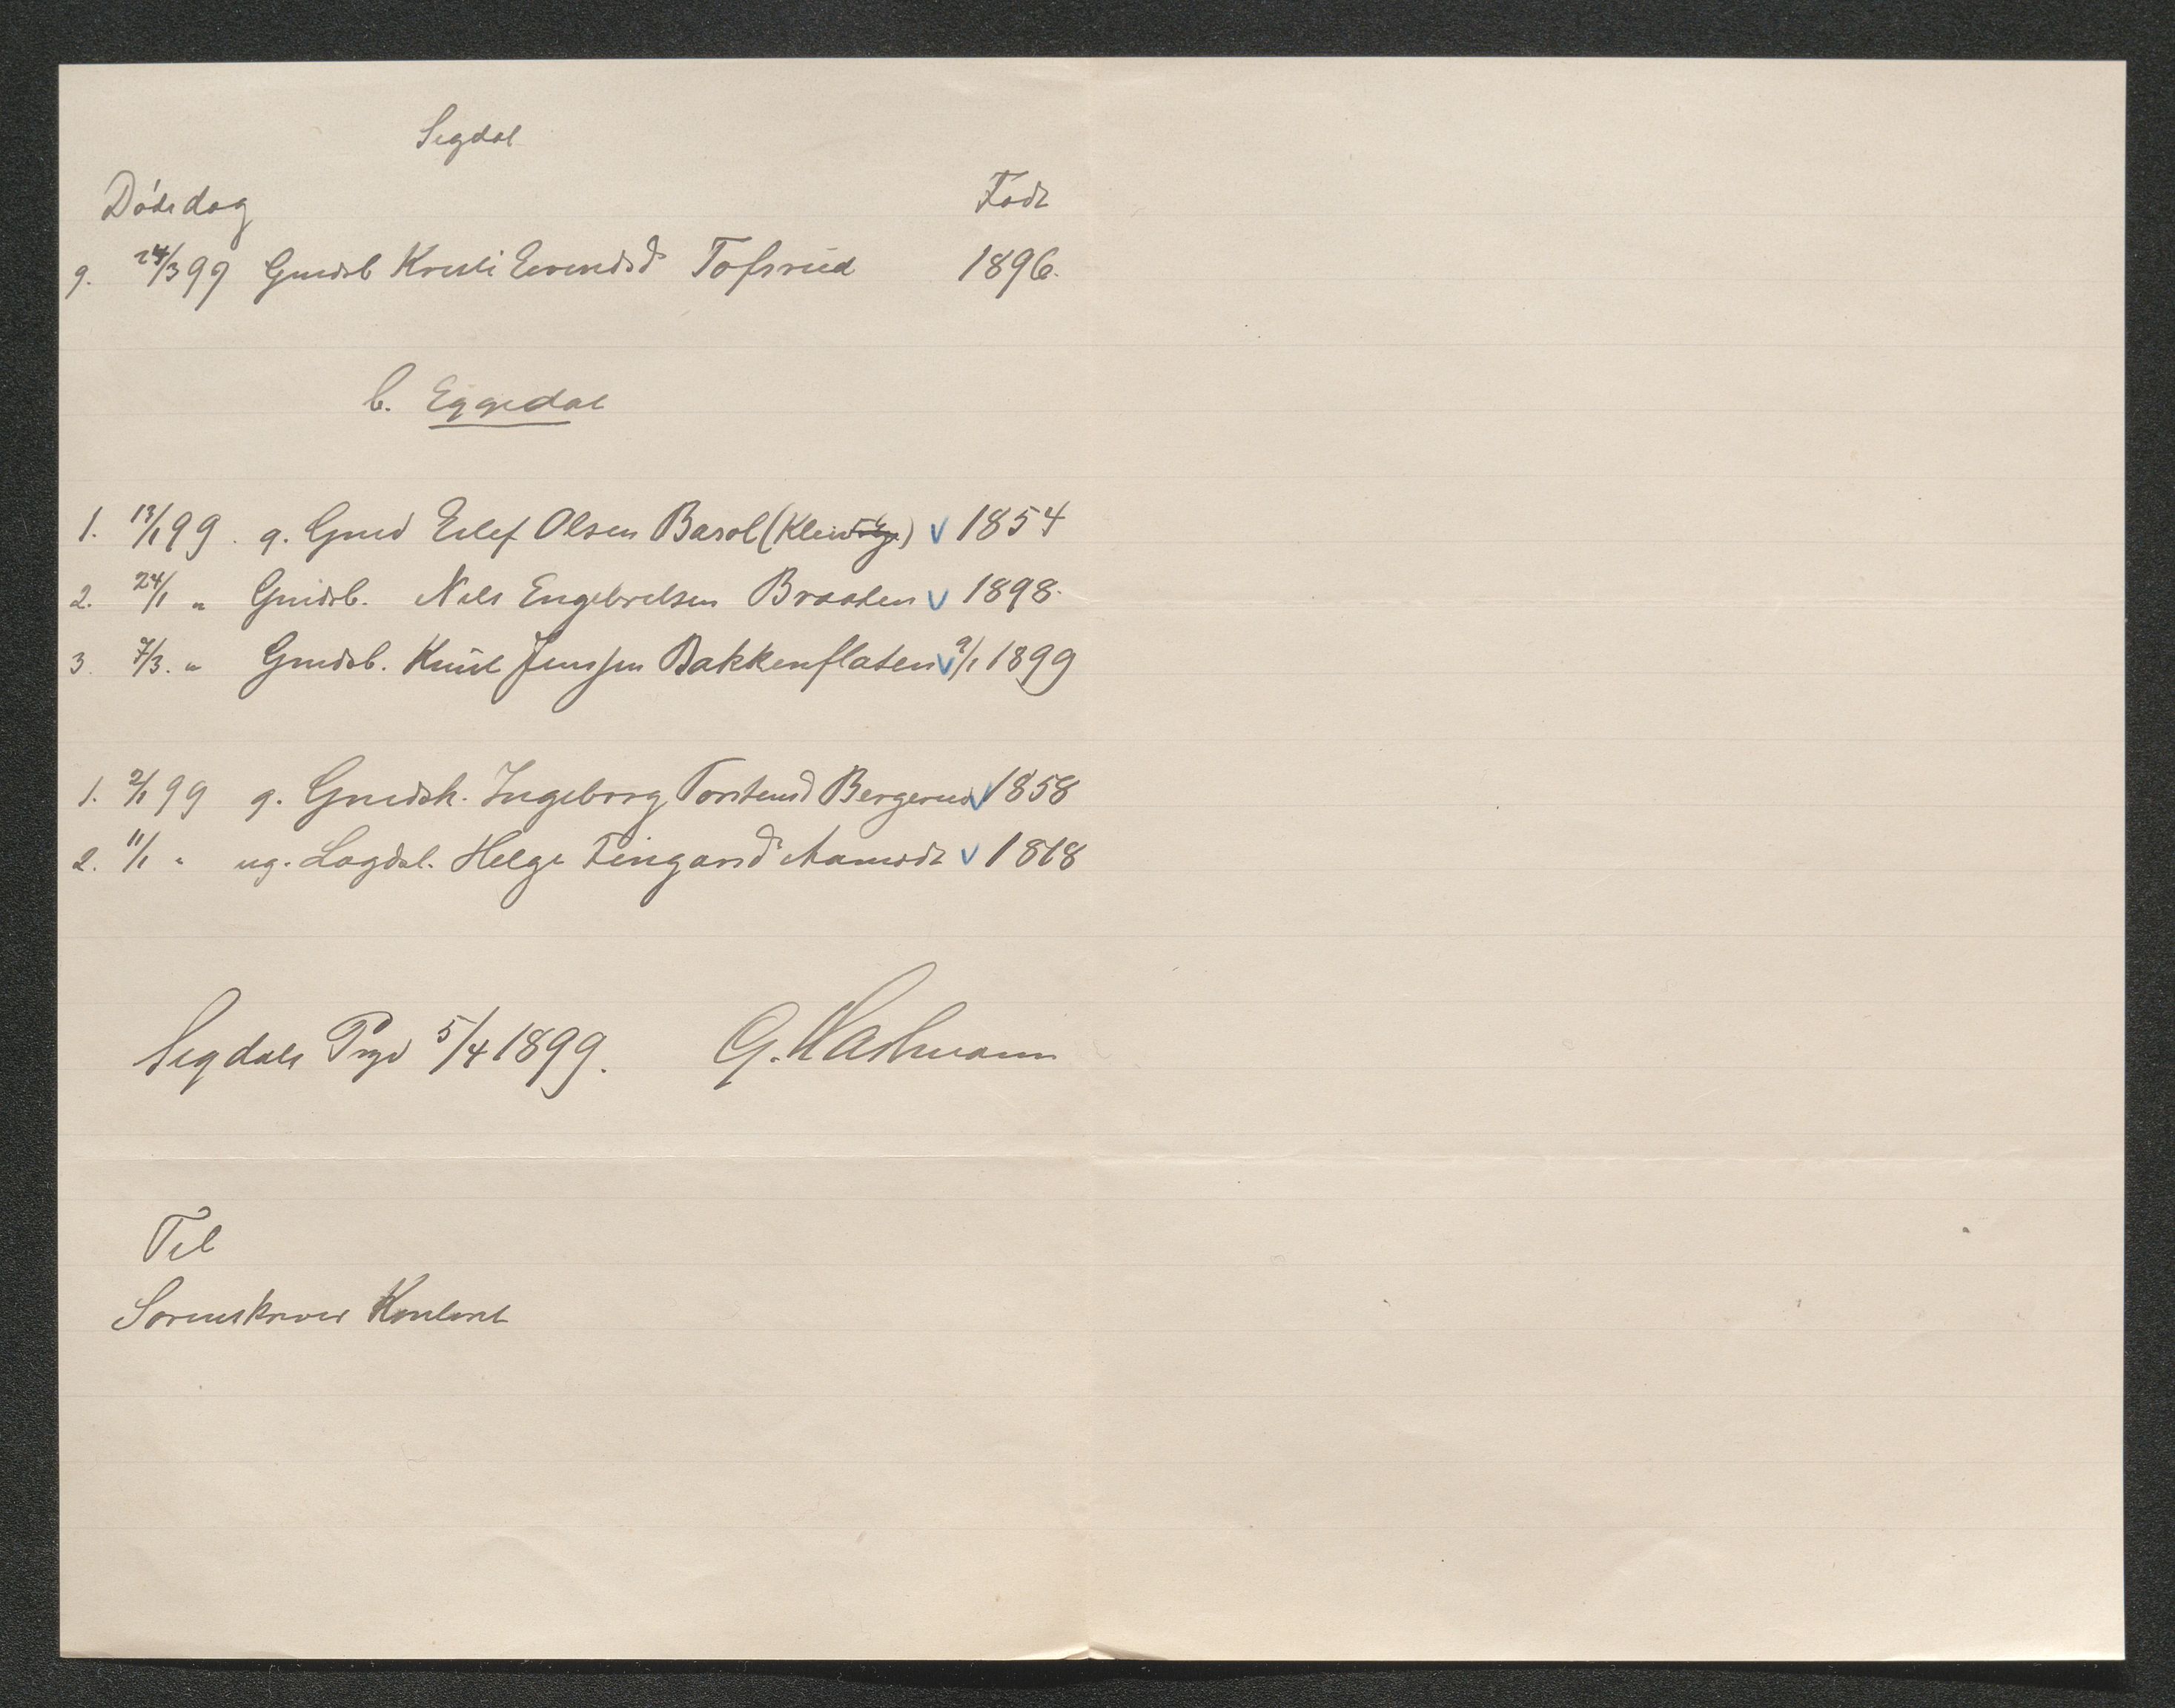 Sigdal
Dødsdag Født
9. 24/3 99 Gmdsb Kristi Eivindsd Tofsrud 1896.
b. Eggedal
1. 13/1 99. g. Gmd Eilef Olsen Basol (Kleiv) v 1854
2. 24/1 " Gmdsb. Nils Engebretsen Braaten v 1898.
3. 7/3. " Gmdsb. Knut Jenssen Bakkenflaten v 9/1 1899
1. 2/1 99 g. Gmdsk. Ingeborg Torstensd Bergerud v 1858
2. 11/1 " ug. Lægdsl. Helge Fingarsd Aamodt v 1818
Sigdals Prgd 5/4 1899. G.
Til
Sorenskriver Kontoret